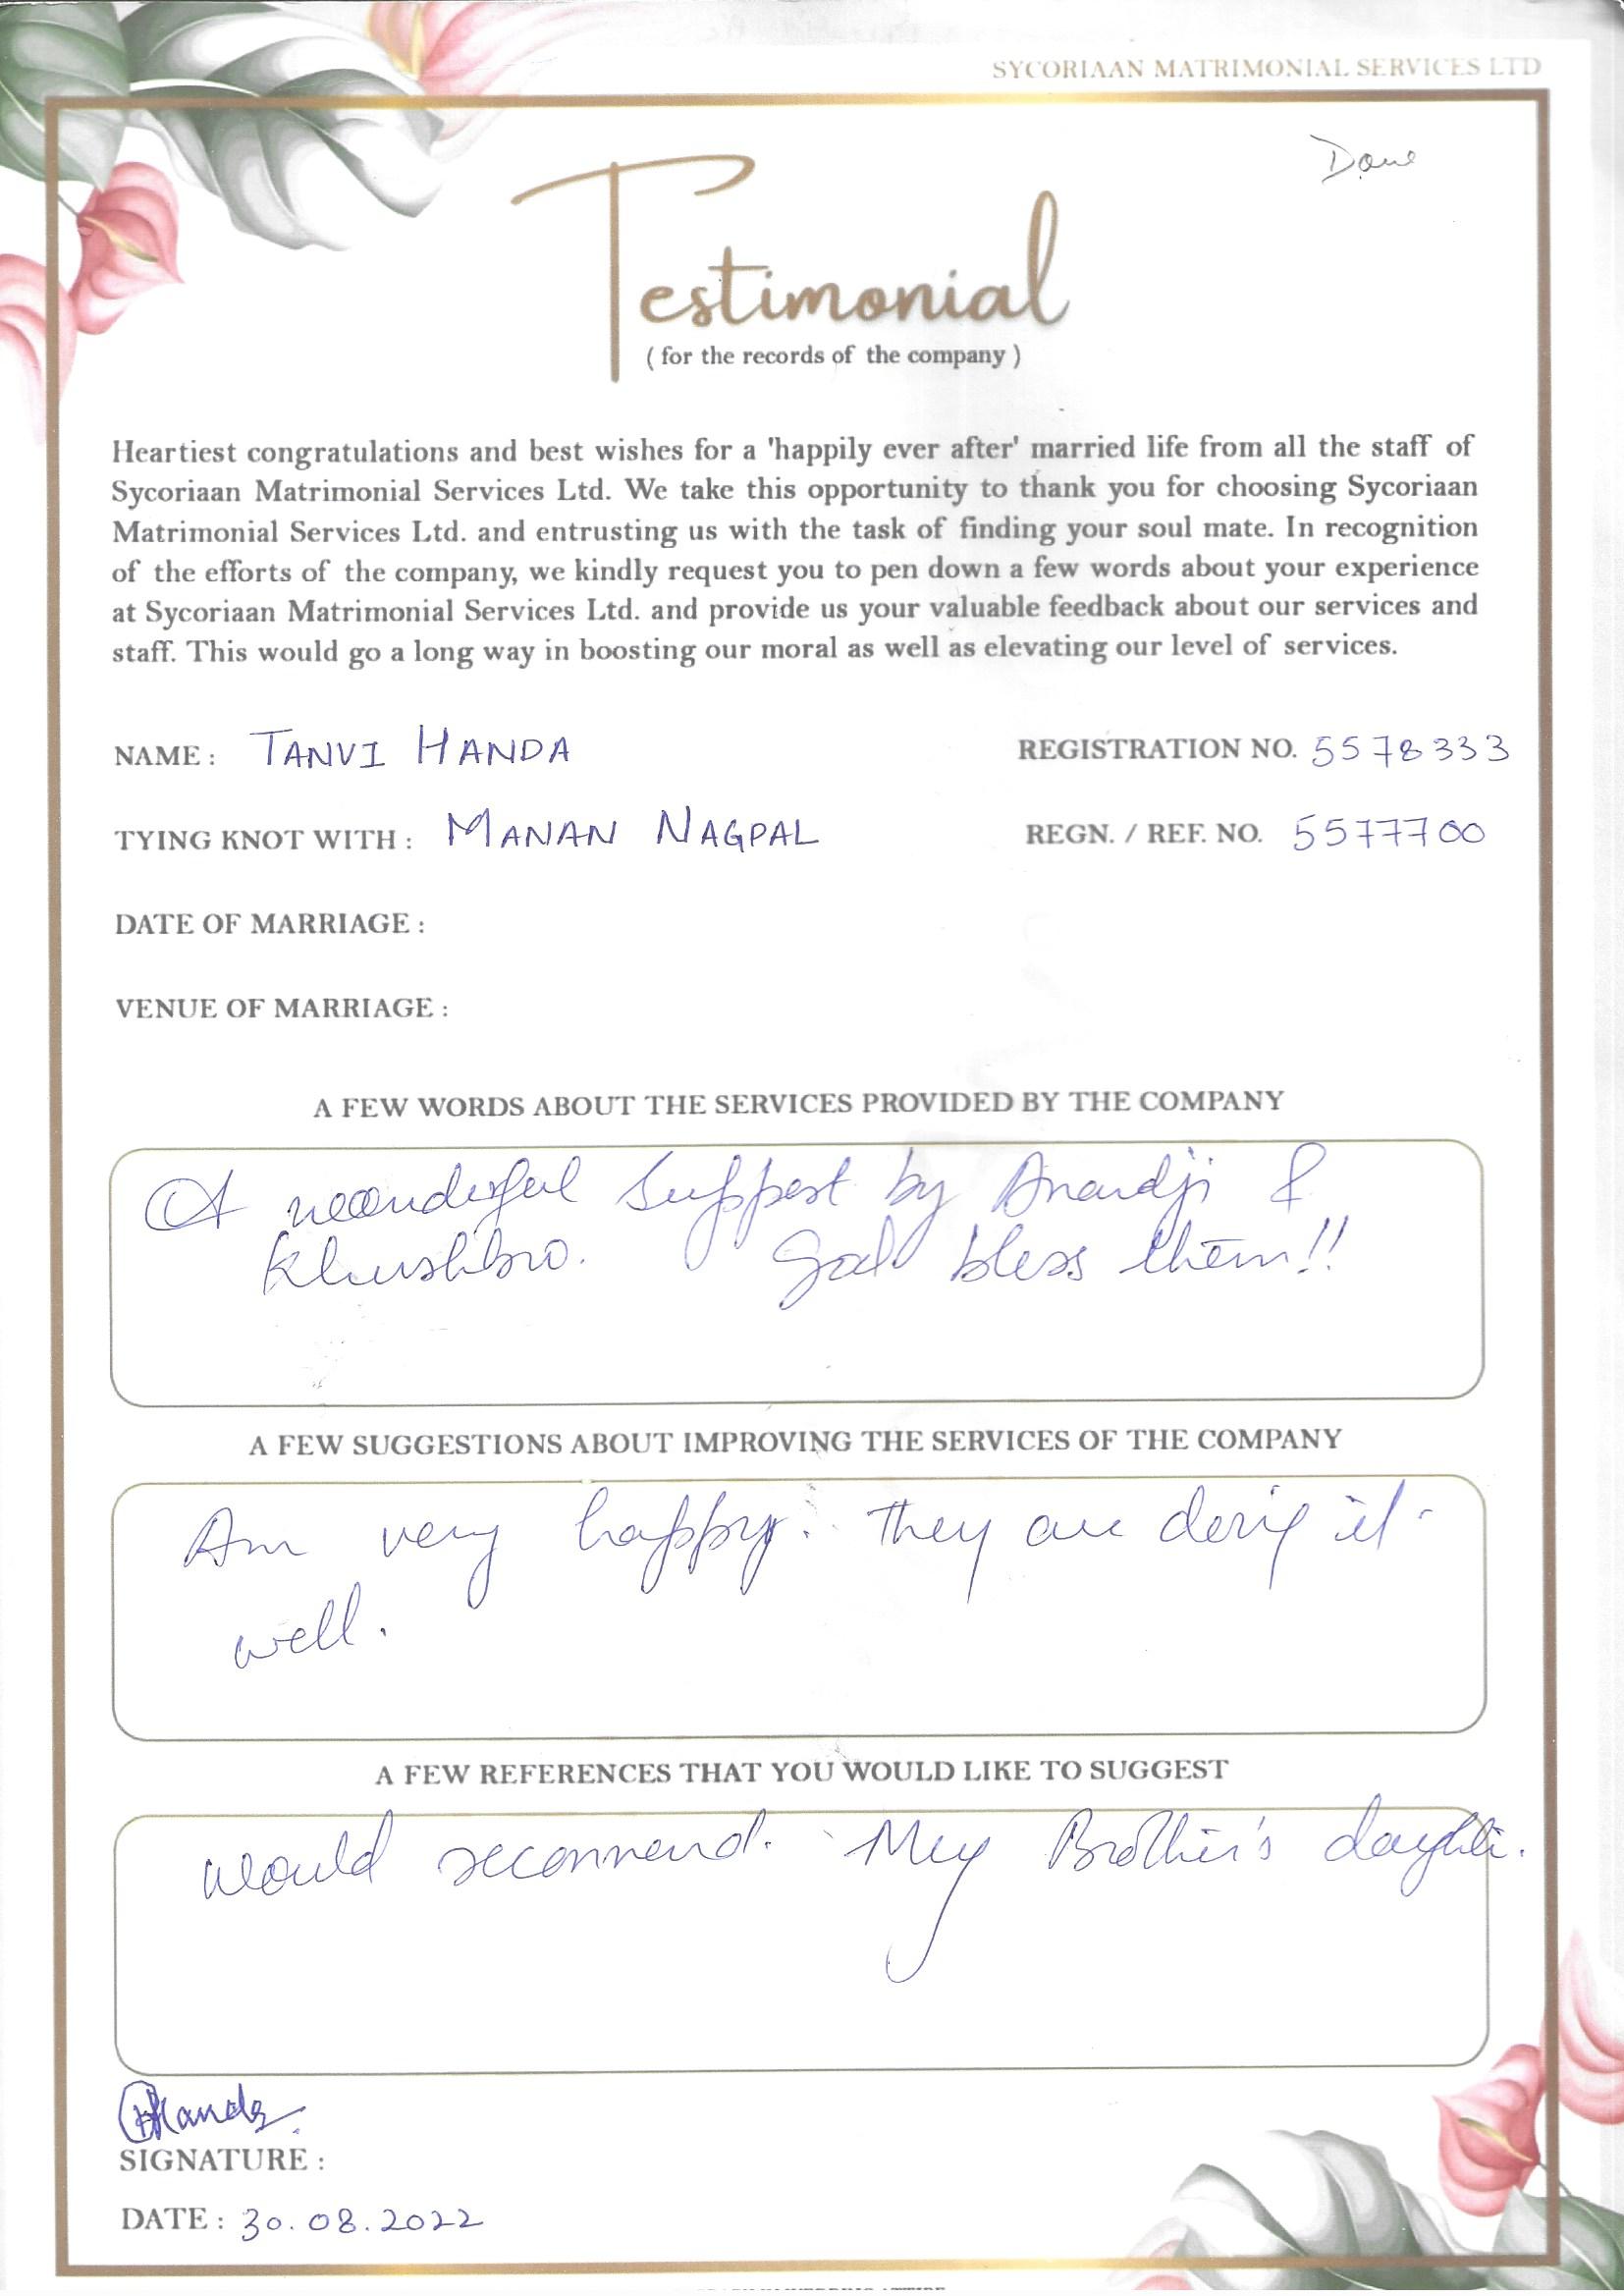 SYCORIAAN MATRIMONIAL SERVICES LTD
Done
Testimonial
( for the records of the company )
Heartiest congratulations and best wishes for a 'happily ever after' married life from all the staff of
Sycoriaan Matrimonial Services Ltd. We take this opportunity to thank you for choosing Sycoriaan
Matrimonial Services Ltd. and entrusting us with the task of finding your soul mate. In recognition
of the efforts of the company, we kindly request you to pen down a few words about your experience
at Sycoriaan Matrimonial Services Ltd. and provide us your valuable feedback about our services and
staff. This would go a long way in boosting our moral as well as elevating our level of services.
NAME : TANVI HANDA REGISTRATION NO. 5578333
TYING KNOT WITH : MANAN NAGPAL REGN. / REF. NO. 5577700
DATE OF MARRIAGE :
VENUE OF MARRIAGE :
A FEW WORDS ABOUT THE SERVICES PROVIDED BY THE COMPANY
A wonderful support by Anandji &
Khushboo. God bless them!!
A FEW SUGGESTIONS ABOUT IMPROVING THE SERVICES OF THE COMPANY
Am very happy. They are doing it
well.
A FEW REFERENCES THAT YOU WOULD LIKE TO SUGGEST
would recommend. My Brother's daughter.
Handa
SIGNATURE :
DATE : 30.08.2022